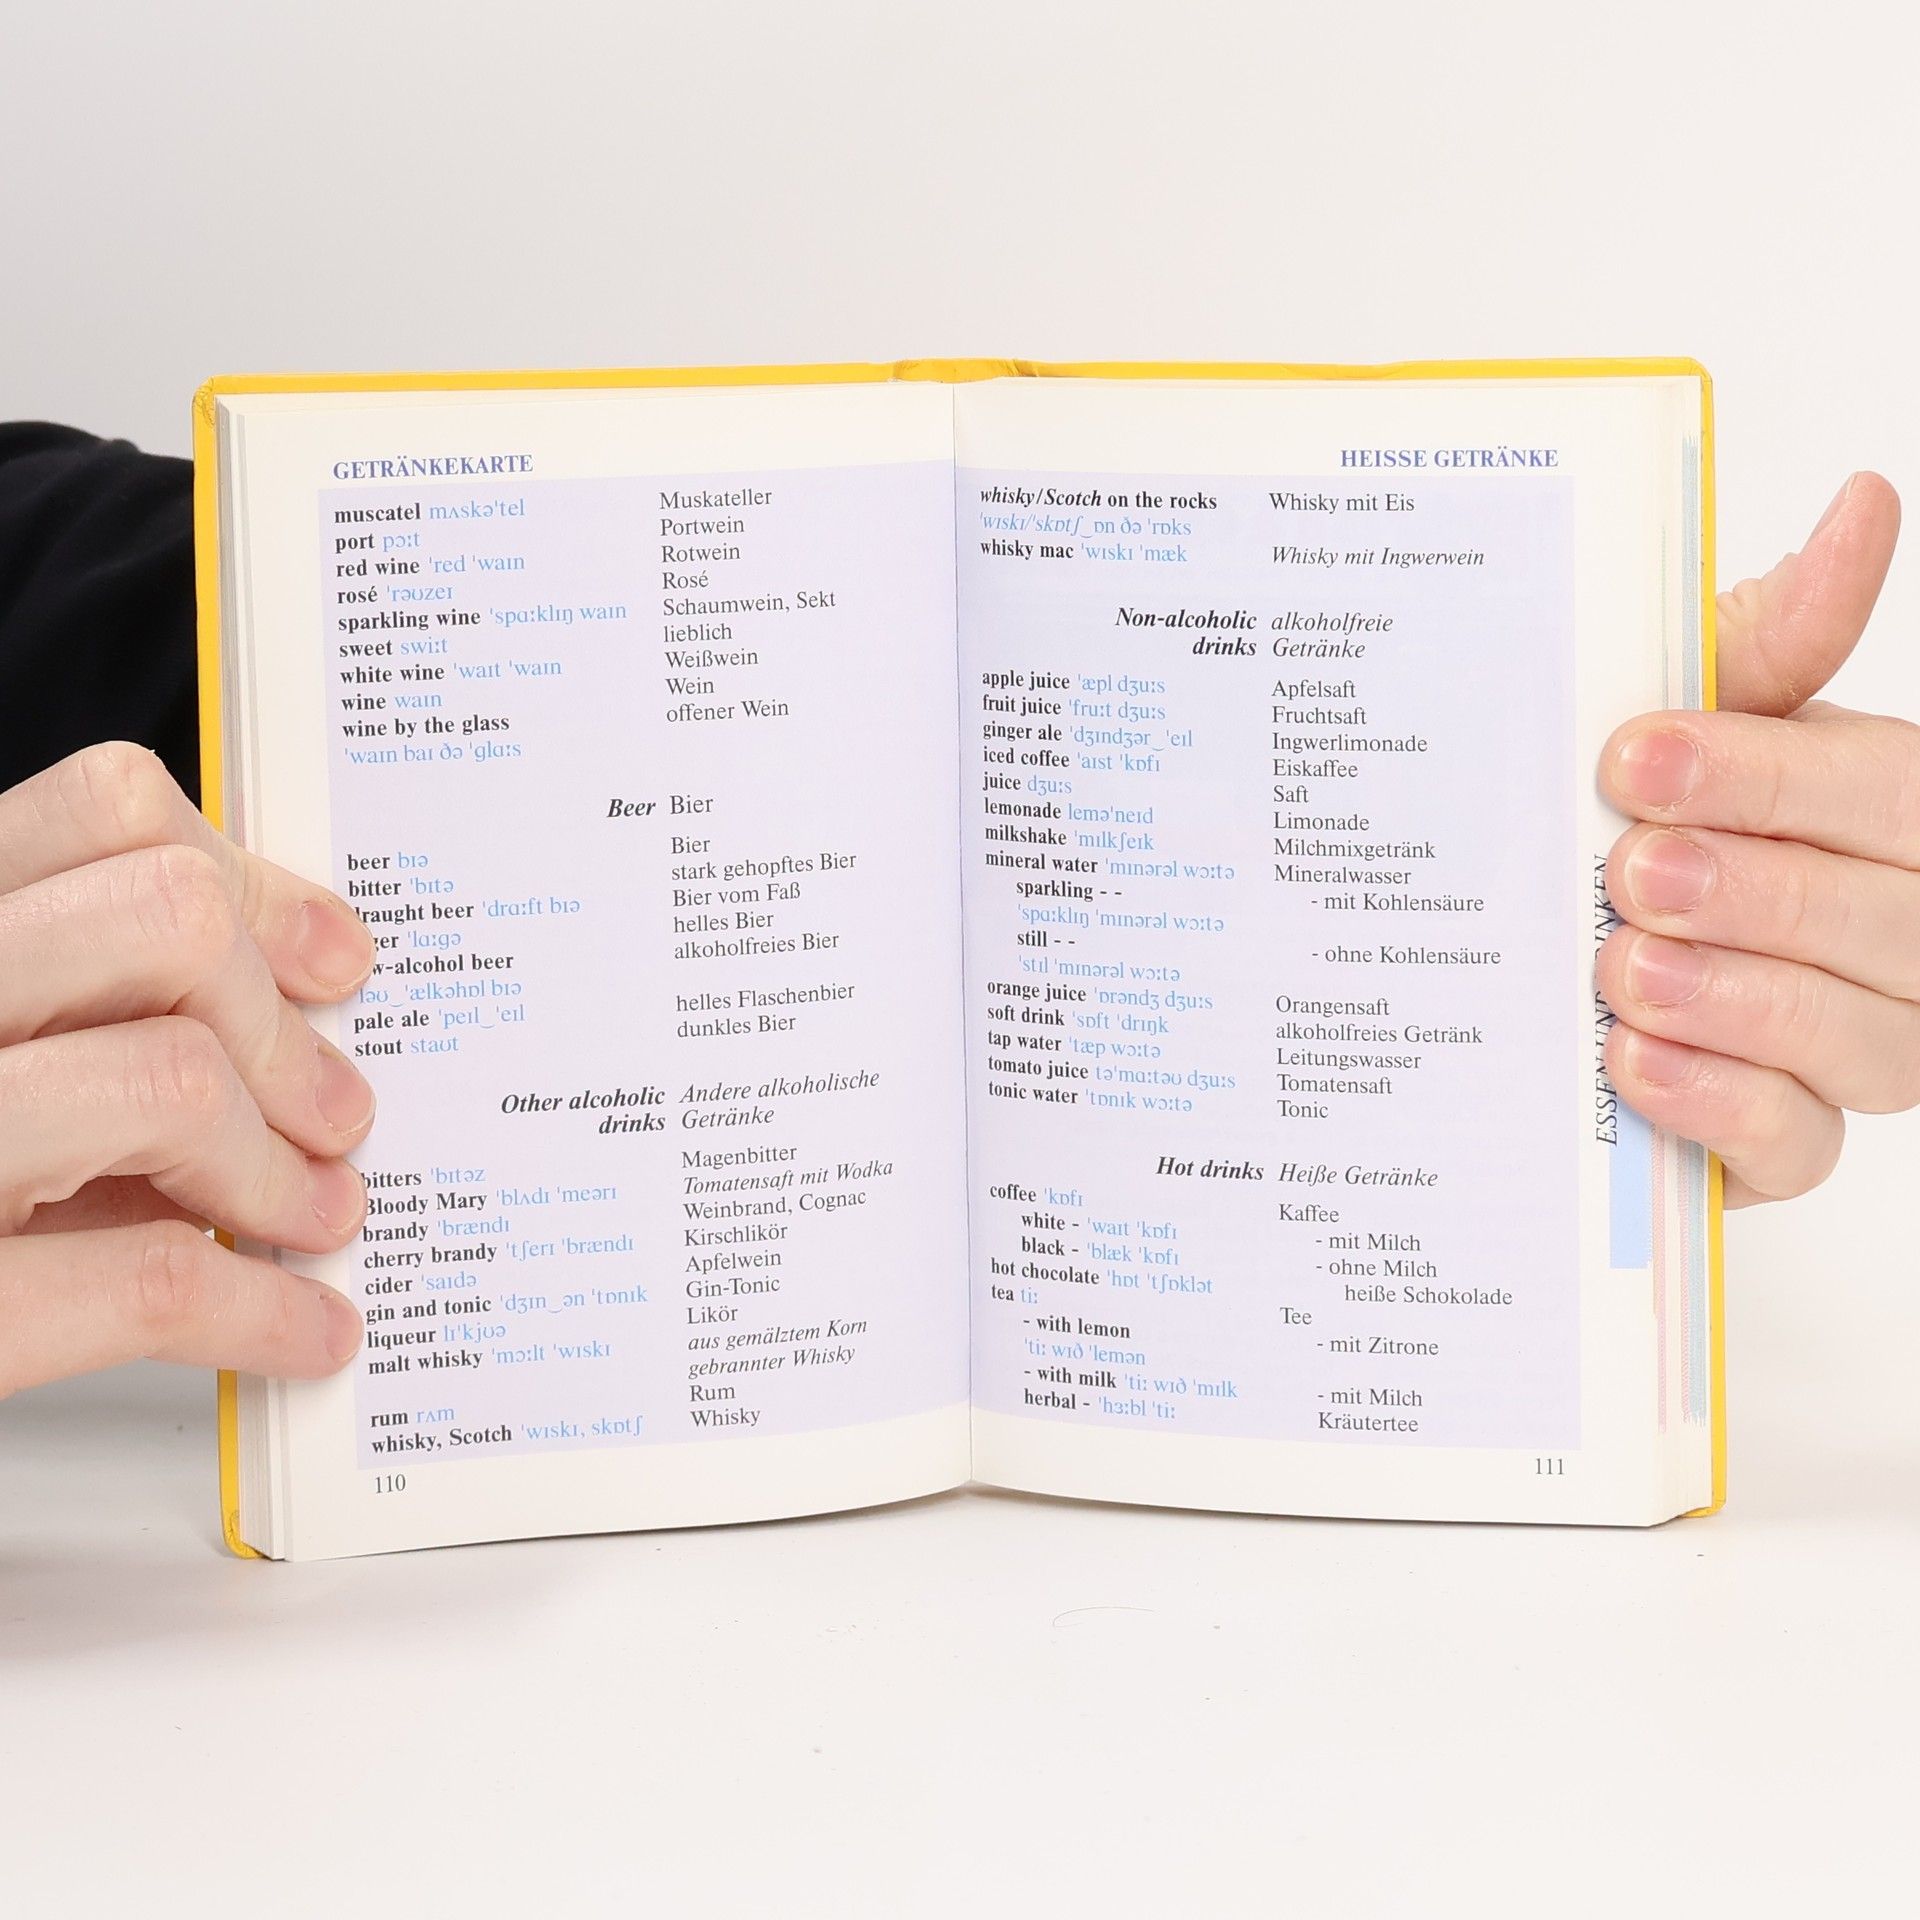 GETRÄNKEKARTE
muscatel mʌskə'tel Muskateller
port pɔːt Portwein
red wine 'red 'waɪn Rotwein
rosé 'rəʊzeɪ Rosé
sparkling wine 'spɑːklɪŋ waɪn Schaumwein, Sekt
sweet swiːt lieblich
white wine 'waɪt 'waɪn Weißwein
wine waɪn Wein
wine by the glass offener Wein
'waɪn baɪ ðə 'glɑːs
Beer Bier
beer bɪə Bier
bitter 'bɪtə stark gehopftes Bier
draught beer 'drɑːft bɪə Bier vom Faß
'lɑːgə helles Bier
w-alcohol beer alkoholfreies Bier
ləʊ‿'ælkəhɒl bɪə
pale ale 'peɪl‿'eɪl helles Flaschenbier
stout staʊt dunkles Bier
Other alcoholic Andere alkoholische
drinks Getränke
bitters 'bɪtəz Magenbitter
Bloody Mary 'blʌdɪ 'meərɪ Tomatensaft mit Wodka
brandy 'brændɪ Weinbrand, Cognac
cherry brandy 'tʃerɪ 'brændɪ Kirschlikör
cider 'saɪdə Apfelwein
gin and tonic 'dʒɪn‿ən 'tɒnɪk Gin-Tonic
liqueur lɪ'kjʊə Likör
malt whisky 'mɔːlt 'wɪskɪ aus gemälztem Korn
gebrannter Whisky
rum rʌm Rum
whisky, Scotch 'wɪskɪ, skɒtʃ Whisky
110
HEISSE GETRÄNKE
whisky/Scotch on the rocks Whisky mit Eis
'wɪskɪ/'skɒtʃ‿ɒn ðə 'rɒks
whisky mac 'wɪskɪ 'mæk Whisky mit Ingwerwein
Non-alcoholic alkoholfreie
drinks Getränke
apple juice 'æpl dʒuːs Apfelsaft
fruit juice 'fruːt dʒuːs Fruchtsaft
ginger ale 'dʒɪndʒər‿'eɪl Ingwerlimonade
iced coffee 'aɪst 'kɒfɪ Eiskaffee
juice dʒuːs Saft
lemonade lemə'neɪd Limonade
milkshake 'mɪlkʃeɪk Milchmixgetränk
mineral water 'mɪnərəl wɔːtə Mineralwasser
sparkling - - - mit Kohlensäure
'spɑːklɪŋ 'mɪnərəl wɔːtə
still - - - ohne Kohlensäure
'stɪl 'mɪnərəl wɔːtə
orange juice 'ɒrəndʒ dʒuːs Orangensaft
soft drink 'sɒft 'drɪŋk alkoholfreies Getränk
tap water 'tæp wɔːtə Leitungswasser
tomato juice tə'mɑːtəʊ dʒuːs Tomatensaft
tonic water 'tɒnɪk wɔːtə Tonic
Hot drinks Heiße Getränke
coffee 'kɒfɪ Kaffee
white - 'waɪt 'kɒfɪ - mit Milch
black - 'blæk 'kɒfɪ - ohne Milch
hot chocolate 'hɒt 'tʃɒklət heiße Schokolade
tea tiː Tee
- with lemon - mit Zitrone
'tiː wɪð 'lemən
- with milk 'tiː wɪð 'mɪlk - mit Milch
herbal - 'hɜːbl 'tiː Kräutertee
111
ESSEN UND TRINKEN